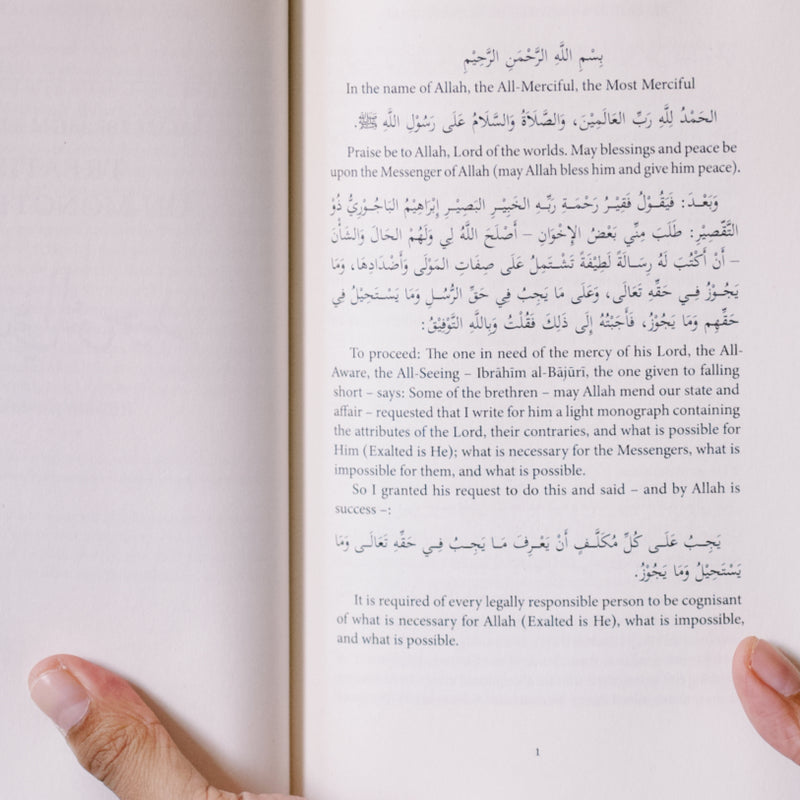 بِسْمِ اللَّهِ الرَّحْمَنِ الرَّحِيْمِ
In the name of Allah, the All-Merciful, the Most Merciful
الحَمْدُ لِلَّهِ رَبِّ العَالَمِيْنَ، وَالصَّلَاةُ وَالسَّلَامُ عَلَى رَسُوْلِ اللَّهِ ﷺ.
Praise be to Allah, Lord of the worlds. May blessings and peace be
upon the Messenger of Allah (may Allah bless him and give him peace).
وَبَعْدَ: فَيَقُوْلُ فَقِيْرُ رَحْمَةِ رَبِّهِ الخَبِيْرِ البَصِيْرِ إِبْرَاهِيْمُ البَاجُوْرِيُّ ذُوْ
التَّقْصِيْرِ: طَلَبَ مِنِّي بَعْضُ الإِخْوَانِ – أَصْلَحَ اللَّهُ لِي وَلَهُمْ الحَالَ وَالشَّأْنَ
– أَنْ أَكْتُبَ لَهُ رِسَالَةً لَطِيْفَةً تَشْتَمِلُ عَلَى صِفَاتِ المَوْلَى وَأَضْدَادِهَا، وَمَا
يَجُوْزُ فِي حَقِّهِ تَعَالَى، وَعَلَى مَا يَجِبُ فِي حَقِّ الرُّسُلِ وَمَا يَسْتَحِيْلُ فِي
حَقِّهِم وَمَا يَجُوْزُ، فَأَجَبْتُهُ إِلَى ذَلِكَ فَقُلْتُ وَبِاللَّهِ التَّوْفِيْقُ:
To proceed: The one in need of the mercy of his Lord, the All-
Aware, the All-Seeing – Ibrāhīm al-Bājūrī, the one given to falling
short – says: Some of the brethren – may Allah mend our state and
affair – requested that I write for him a light monograph containing
the attributes of the Lord, their contraries, and what is possible for
Him (Exalted is He); what is necessary for the Messengers, what is
impossible for them, and what is possible.
So I granted his request to do this and said – and by Allah is
success –:
يَجِبُ عَلَى كُلِّ مُكَلَّفٍ أَنْ يَعْرِفَ مَا يَجِبُ فِي حَقِّهِ تَعَالَى وَمَا
يَسْتَحِيْلُ وَمَا يَجُوْزُ.
It is required of every legally responsible person to be cognisant
of what is necessary for Allah (Exalted is He), what is impossible,
and what is possible.
1